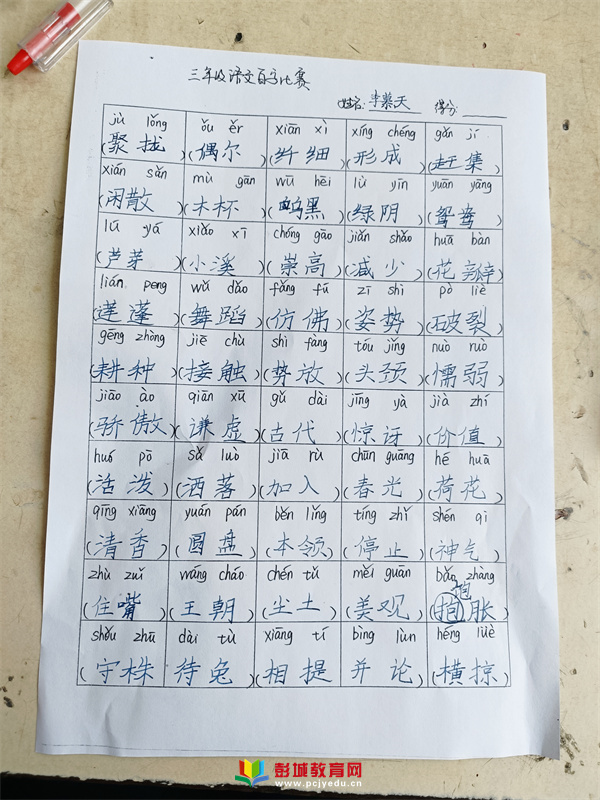 三年级语文百字比赛
姓名: 李慕天 得分:
jù lǒng ǒu ěr xiān xì xíng chéng gǎn jí
(聚拢) (偶尔) (纤细) (形成) (赶集)
xián sǎn mù gān wū hēi lǜ yīn yuān yāng
(闲散) (木杯) (鸣黑) (绿阴) (鸳鸯)
lú yá xiǎo xī chóng gāo jiǎn shǎo huā bàn
(芦芽) (小溪) (崇高) (减少) (花瓣)
lián peng wǔ dǎo fǎng fú zī shì pò liè
(莲蓬) (舞蹈) (仿佛) (姿势) (破裂)
gēng zhòng jiē chù shì fàng tóu jǐng nuò ruò
(耕种) (接触) (势放) (头颈) (懦弱)
jiāo ào qiān xū gǔ dài jīng yà jià zhí
(骄傲) (谦虚) (古代) (惊讶) (价值)
huó pō sǎ luò jiā rù chūn guāng hé huā
(活泼) (洒落) (加入) (春光) (荷花)
qīng xiāng yuán pán běn lǐng tíng zhǐ shén qì
(清香) (圆盘) (本领) (停止) (神气)
zhù zuǐ wáng cháo chén tǔ měi guān bǎo zhàng
(住嘴) (王朝) (尘土) (美观) (抱胀)
shǒu zhū dài tù xiāng tí bìng lùn héng lüè
(守株 待兔) (相提 并论) (横掠)
彭城教育网
www.pcjyedu.cn